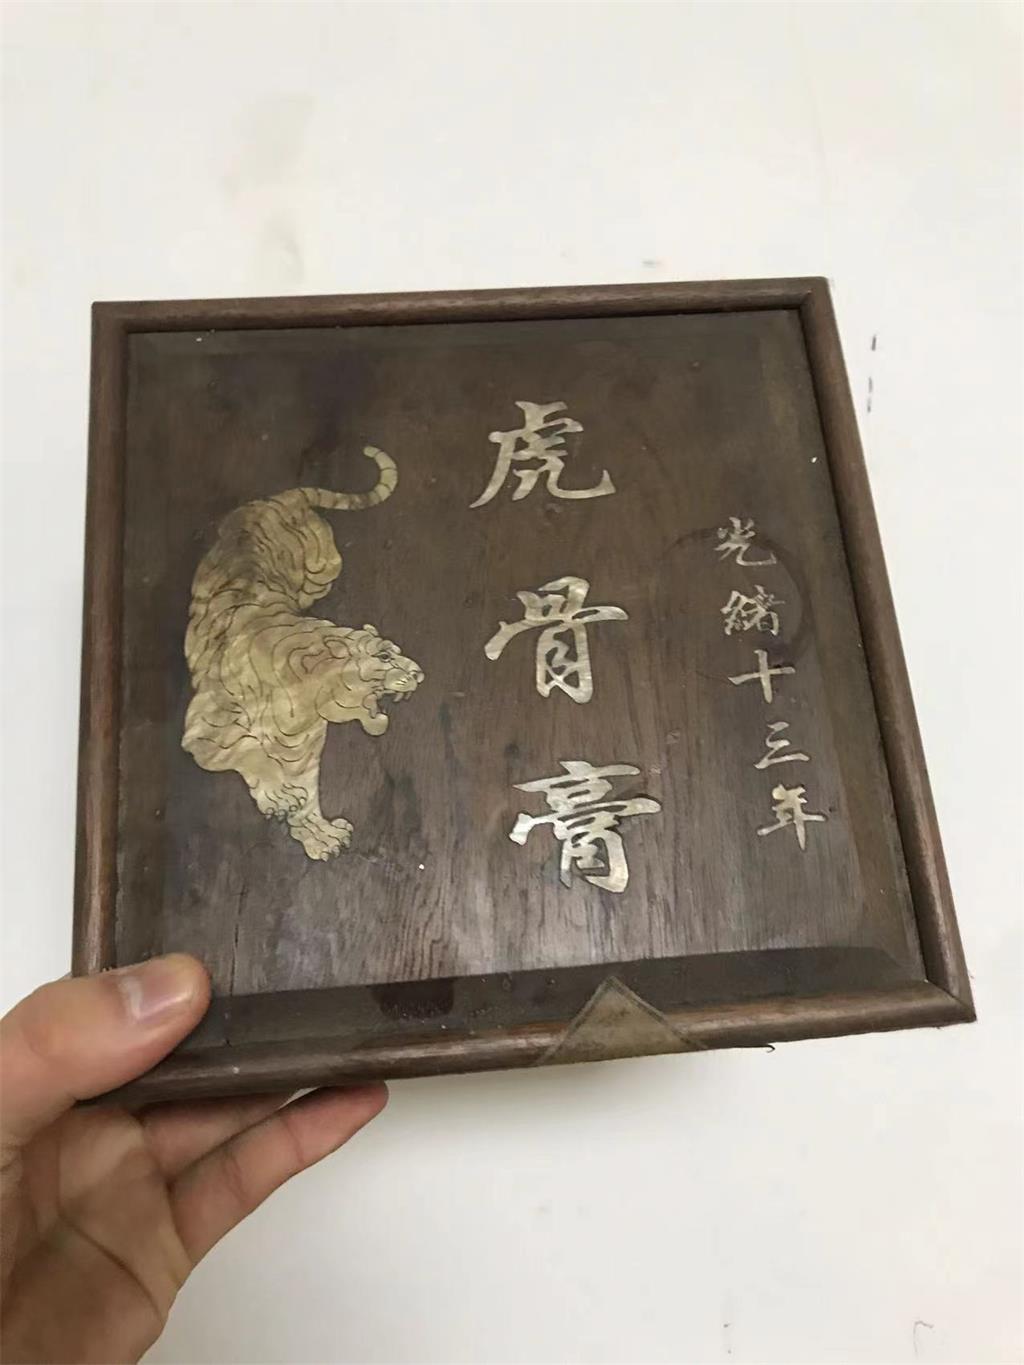 虎骨膏
光緒十三年